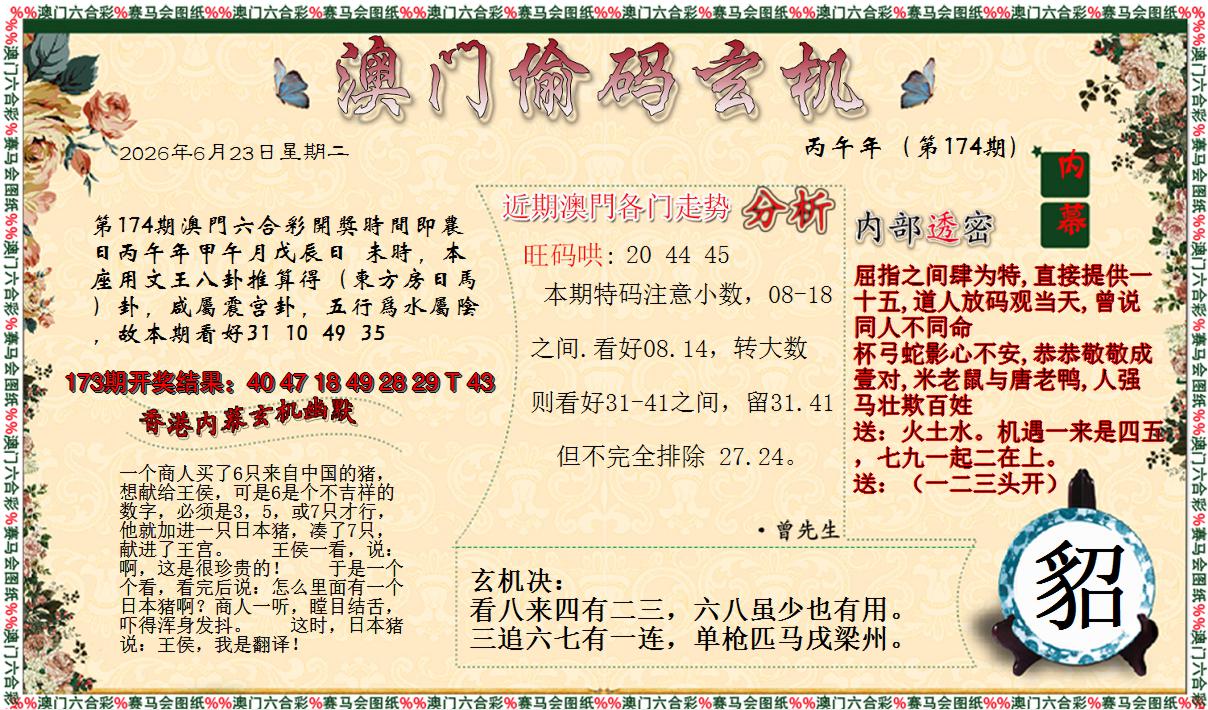 %%澳门六合彩%赛马会图纸%%澳门六合彩%赛马会图纸%%澳门六合彩%赛马会图纸%%澳门六合彩%赛马会图纸%%澳门六合彩%赛马会图纸%%澳门六合彩%赛马会图纸%%
澳门偷码玄机
2026年6月23日星期二
丙午年（第174期）
内幕
第174期澳門六合彩開獎時間即農
日丙午年甲午月戊辰日 未時，本
座用文王八卦推算得（東方房日馬
）卦，咸屬震宮卦，五行爲水屬陰
，故本期看好31 10 49 35
173期开奖结果：40 47 18 49 28 29 T 43
香港内幕玄机幽默
一个商人买了6只来自中国的猪，
想献给王侯，可是6是个不吉祥的
数字，必须是3，5，或7只才行，
他就加进一只日本猪，凑了7只，
献进了王宫。 王侯一看，说：
啊，这是很珍贵的！ 于是一个
个看，看完后说：怎么里面有一个
日本猪啊？商人一听，瞠目结舌，
吓得浑身发抖。 这时，日本猪
说：王侯，我是翻译！
近期澳門各门走势 分析
旺码哄: 20 44 45
本期特码注意小数，08-18
之间.看好08.14，转大数
则看好31-41之间，留31.41
但不完全排除 27.24。
·曾先生
玄机决：
看八来四有二三，六八虽少也有用。
三追六七有一连，单枪匹马戌梁州。
内部透密
屈指之间肆为特,直接提供一
十五,道人放码观当天,曾说
同人不同命
杯弓蛇影心不安,恭恭敬敬成
壹对,米老鼠与唐老鸭,人强
马壮欺百姓
送：火土水。机遇一来是四五
，七九一起二在上。
送：（一二三头开）
貂
%%澳门六合彩%赛马会图纸%%澳门六合彩%赛马会图纸%%澳门六合彩%赛马会图纸%%澳门六合彩%赛马会图纸%%澳门六合彩%赛马会图纸%%澳门六合彩%赛马会图纸%%